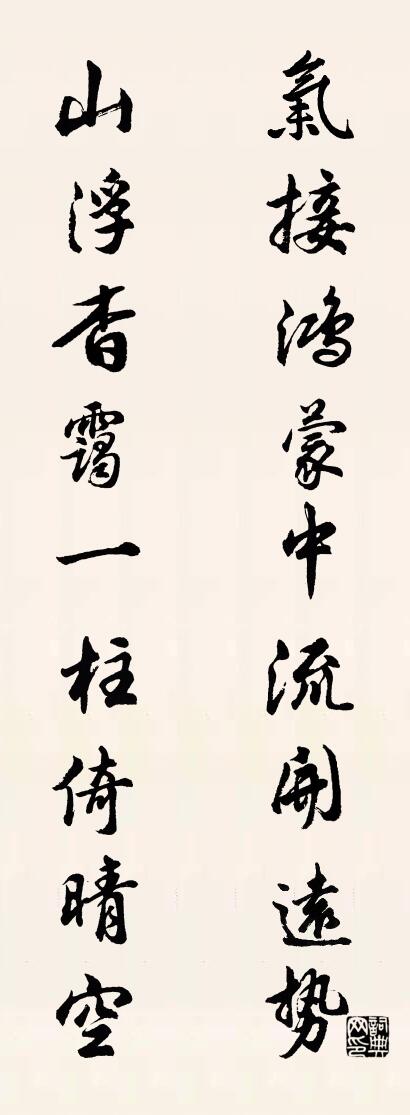 氣接鴻蒙中流開遠勢
山浮香靄一柱倚晴空
詞典網印